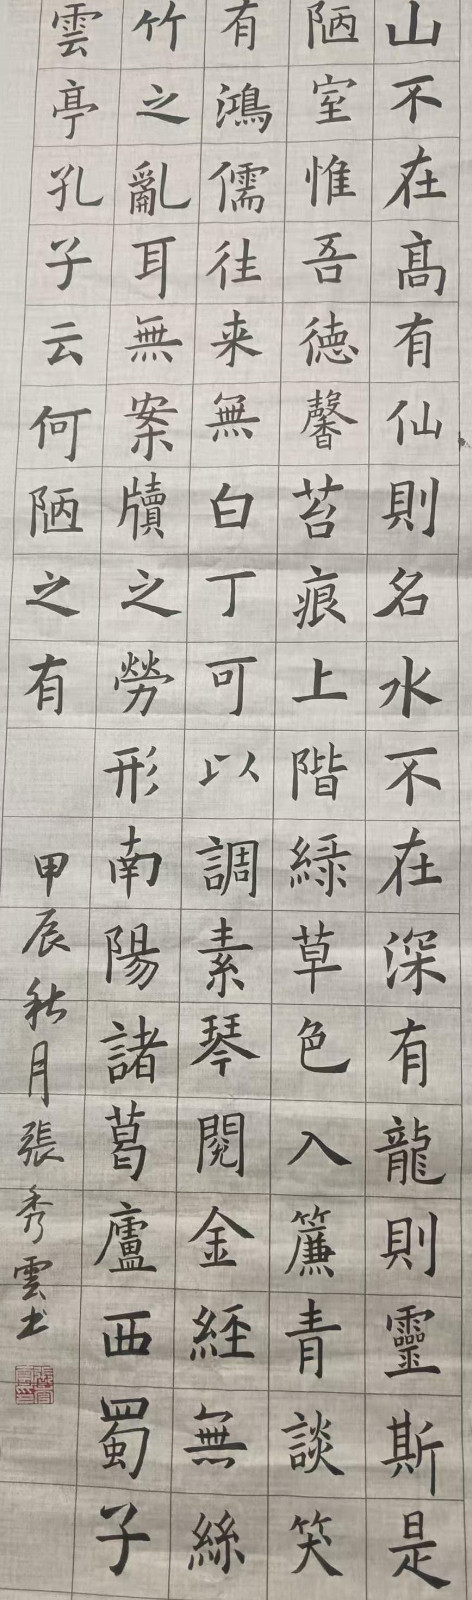 山不在高有仙則名水不在深有龍則靈斯是
陋室惟吾德馨苔痕上階綠草色入簾青談笑
有鴻儒往来無白丁可以調素琴閱金經無絲
竹之亂耳無案牘之勞形南陽諸葛廬西蜀子
雲亭孔子云何陋之有
甲辰秋月張秀雲书